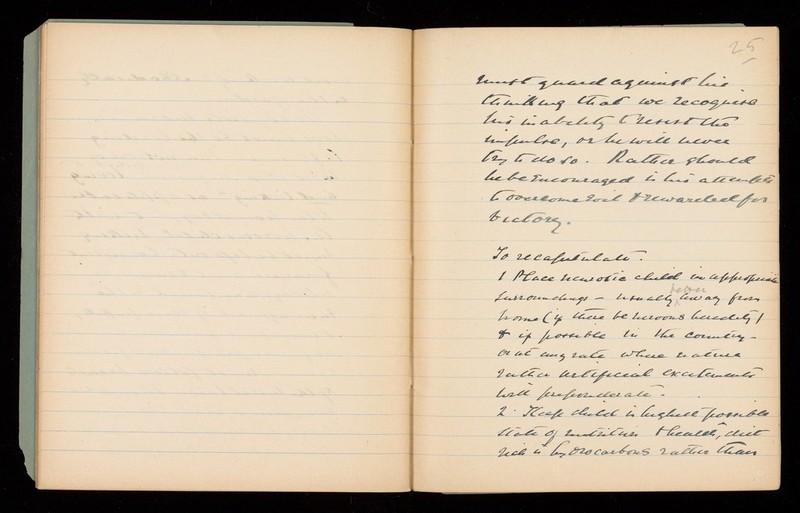 25
must guard against his
thinking that we recognise
his inability to resist the
impulse, or he will never
try to do so. Rather should
he be encouraged in his attempts
to overcome evil & rewarded for
victory.
To recapitulate.
1 Place neurotic child in appropriate
surroundings - usually better away from
home (if there be nervous heredity)
& if possible in the country -
or at any rate where natural
rather artificial excitements
will preponderate.
2. Keep child in highest possible
state of nutrition & health, diet
rich in hydrocarbons rather than